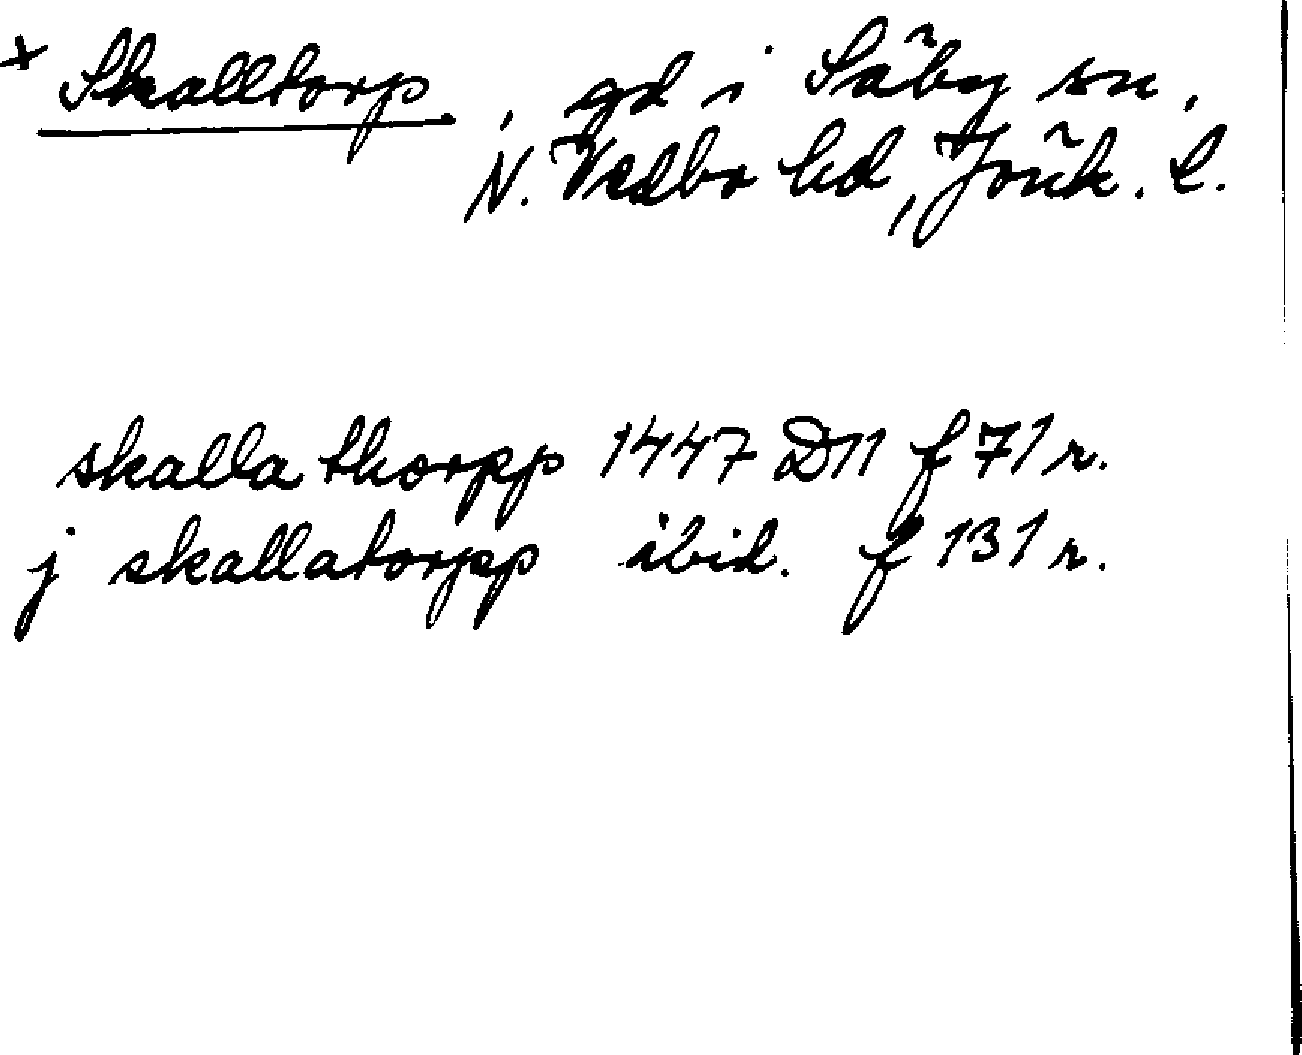 + Skalltorp, gd i Säby sn,
N. Vedbo hd, Jönk. l.
skalla thorpp 1447 D11 f 71 r.
j skallatorpp ibid. f 131 r.